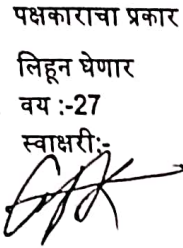 पक्षकाराचा प्रकार
लिहून घेणार
वय :-27
स्वाक्षरी:-